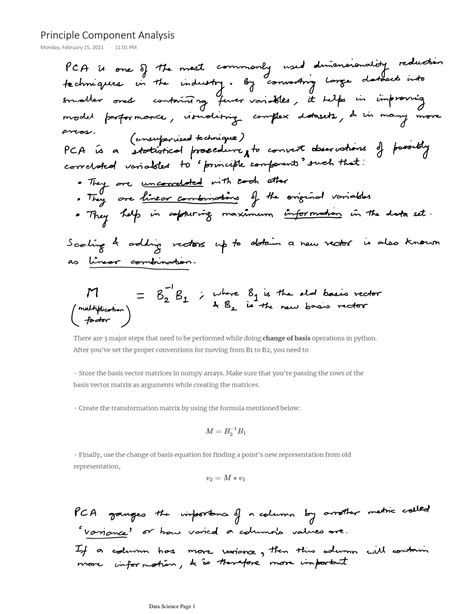 Principle Component Analysis
Monday, February 15, 2021 11:01 PM
PCA is one of the most commonly used dimensionality reduction
techniques in the industry. By converting large datasets into
smaller ones containing fewer variables, it helps in improving
model performance, visualising complex datasets, & in many more
areas.
(unsupervised technique)
PCA is a statistical procedure to convert observations of possibly
correlated variables to 'principle components' such that:
• They are uncorrelated with each other
• They are linear combinations of the original variables
• They help in capturing maximum information in the data set.
Scaling & adding vectors up to obtain a new vector is also known
as linear combination.
M = B₂⁻¹ B₁ ; where B₁ is the old basis vector
(multiplication factor) & B₂ is the new basis vector
There are 3 major steps that need to be performed while doing change of basis operations in python.
After you've set the proper conventions for moving from B1 to B2, you need to
- Store the basis vector matrices in numpy arrays. Make sure that you're passing the rows of the
basis vector matrix as arguments while creating the matrices.
- Create the transformation matrix by using the formula mentioned below:
M = B₂⁻¹B₁
- Finally, use the change of basis equation for finding a point's new representation from old
representation,
v₂ = M * v₁
PCA gauges the importance of a column by another metric called
'variance' or how varied a column's values are.
If a column has more variance, then this column will contain
more information, & is therefore more important
Data Science Page 1